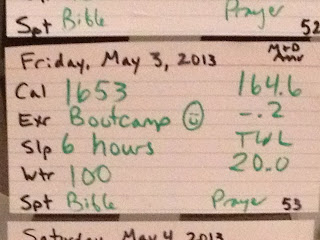 Spt Bible Prayer 52
Friday, May 3, 2013 M+D Anv
Cal 1653 164.6
Exr Bootcamp -.2
Slp 6 hours TWL
Wtr 100 20.0
Spt Bible Prayer 53
Saturday May 4 2013